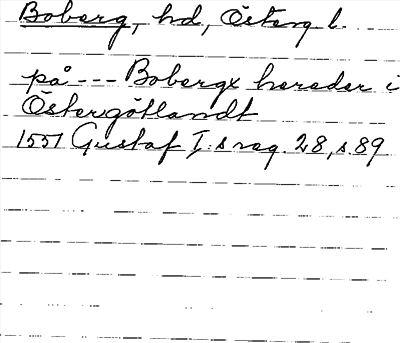 Boberg, hd, Österg l.
på --- Bobergx hereder i
Östergötlandt
1557 Gustaf I:s reg. 28, s. 89